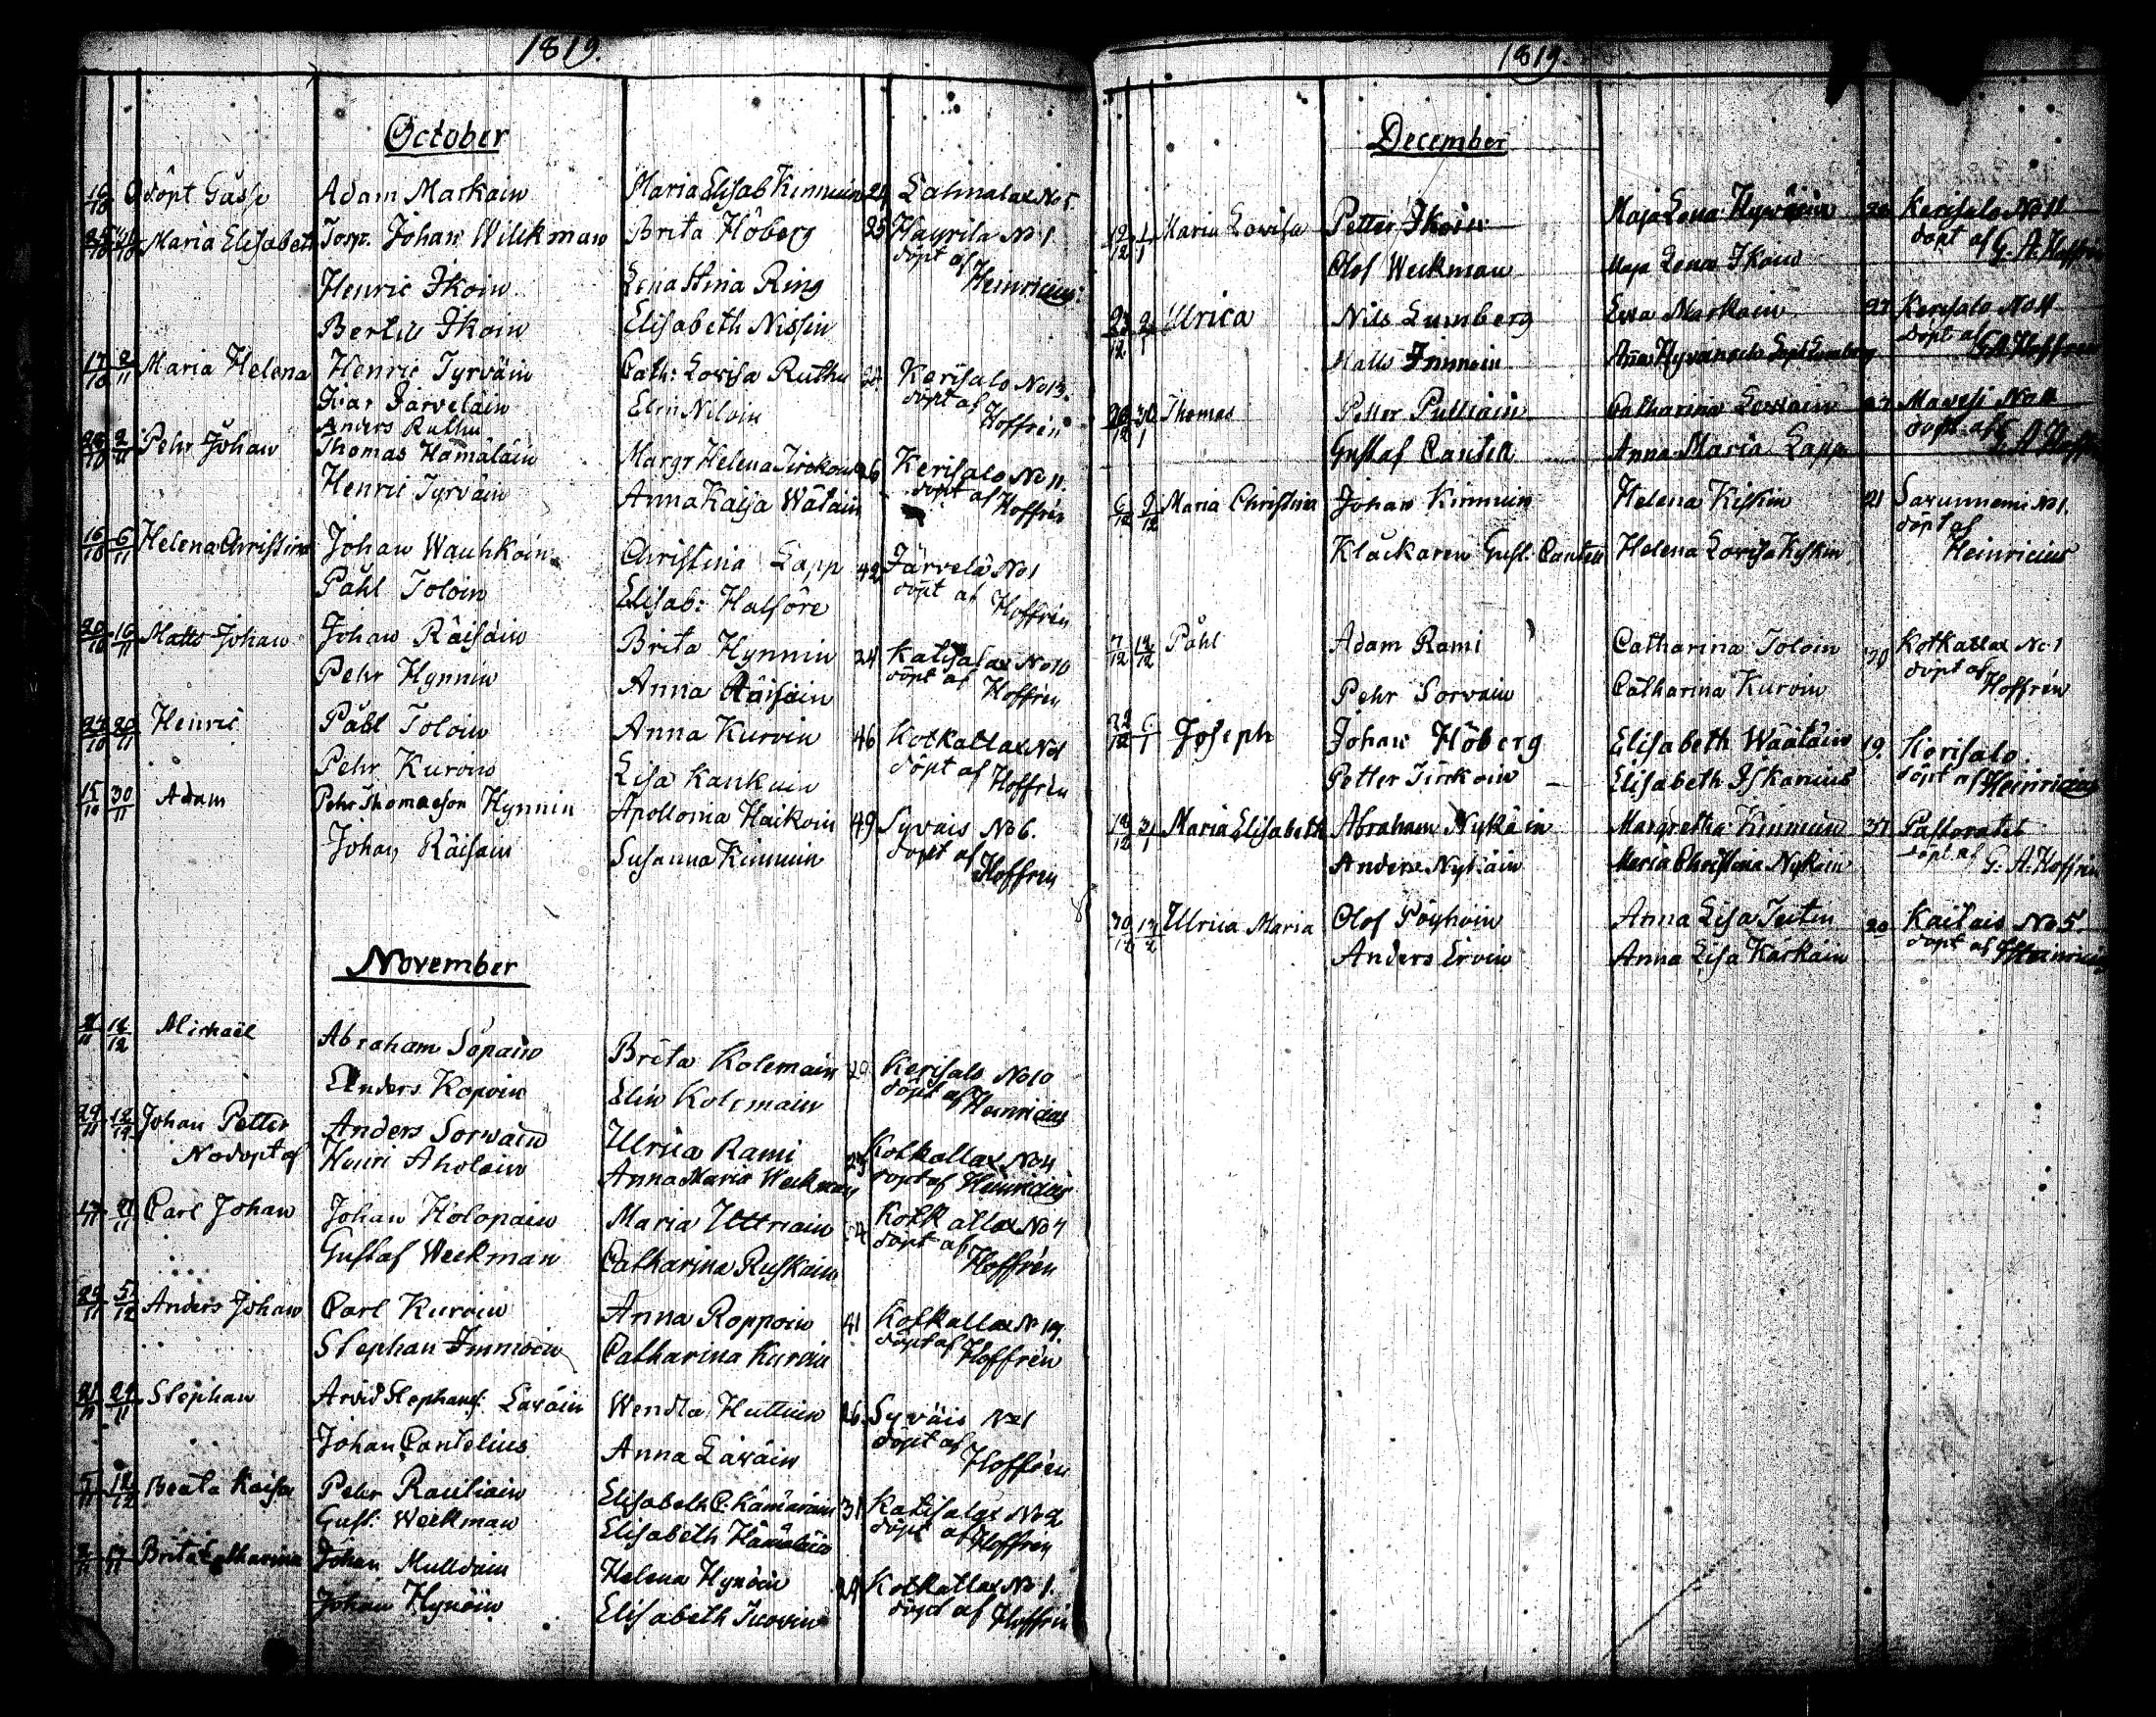 1819.
October
16/10 Odöpt Gåsse Adam Markain Maria Elisab Kinnuin 24 Lahnalax No 5.
Maria Elisabeth Insp. Johan Willkman Brita Höberg 25 Haurila No 1
döpt af Heinricius
Henric Ikoin Lena Stina Ring
Bertill Ikoin Elisabeth Nissin
17/10 2/11 Maria Helena Henric Tyrväin Cath: Lovisa Ruthu Kerisalo No 13.
döpt af Hoffrén
Ivar Järveläin Elin Niloin
Anders Ruthu
2/11 Pehr Johan Thomas Hämäläin Margr Helena Tirckoin 26 Kerisalo No 11.
döpt af Hoffrén
Henric Tyrväin Anna Kaisa Wätäin
16/10 6/11 Helena Christina Johan Wauhkoin Christina Lapp 42 Järvelä No 1
döpt af Hoffrén
Påhl Toloin Elisab: Halföre
20/10 Matts Johan Johan Räisäin Brita Hynnin 24 Katisalax No 10
döpt af Hoffrén
Pehr Hynnin Anna Räisäin
Henric Påhl Toloin Anna Kurvin 46 Kotkatlax No 1
döpt af Hoffrén
Pehr Kurvin Lisa Kaukuin
15/10 30/11 Adam Pehr Thomasson Hynnin Apollonia Haikoin 49 Syvais No 6.
döpt af Hoffrén
Johan Räisäin Susanna Kinnuin
November
Michaël Abraham Sopain Brita Kolemain Kerisalo No 10
döpt af Heinricius
Anders Kopoin Elin Kolemain
29/11 12/12 Johan Petter Anders Sorvain Ulrica Rami Kotkatlax No 4
Nödöpt af Henri Aholain Anna Maria Weckman döpt af Heinricius
17/11 21/11 Carl Johan Johan Holopain Maria Uttriain Kotkatlax No 4
döpt af Hoffrén
Gustaf Weckman Catharina Ruskain
29/11 5/12 Anders Johan Carl Kurvin Anna Roppoin 41 Kotkatlax No 19.
döpt af Hoffrén
Stephan Immoin Catharina Kurvin
21/11 29/11 Stephan Arvid Stephans: Laväin Wendla Huttuin 26. Syväis No 1
döpt af Hoffrén
Johan Cantelius Anna Laväin
5/11 12/12 Beata Kaisa Pehr Rautiain Elisabeth C. Kämäräin 31 Katisalax No 2
döpt af Hoffrén
Gust: Weckman Elisabeth Hämäläin
Brita Catharina Johan Mulldain Helena Hynöin 24 Kotkatlax No 1.
döpt af Hoffrén
Johan Hynöin Elisabeth Tuovin
1819.
December
1/1 Maria Lovisa Petter Ikoin Maja Lena Hyväin Kerisalo No 11
döpt af G. A. Hoffrén
Olof Weckman Maja Lena Ikoin
Ulrica Nils Lumberg Ewa Markain 27 Kerisalo No 11
döpt af G A Hoffrén
Matts Immoin
Thomas Petter Pulliain Catharina Mavesi No
döpt af G A Hoffrén
Gustaf Cantell Anna Maria Lapp
6/12 9/12 Maria Christina Johan Kinnuin Helena Kiskin 21 Savunniemi No 1.
döpt af Heinricius
Klåckaren Gust. Cantell Helena Lovisa Kiskin
7/12 12/12 Påhl Adam Rami Catharina Toloin Kotkatlax No 1
döpt af Hoffrén
Pehr Sorvain Catharina Kurvin
Joseph Johan Höberg Elisabeth Wäätäin 19. Kerisalo.
döpt af Heinricius
Petter Tirckoin Elisabeth Iskanius
Maria Elisabeth Abraham Nykäin Margretha Kinnuin 37 Pastoratet
döpt af G. A. Hoffrén
Anders Nykäin Maria Christina Nykäin
30/12 Ulrica Maria Olof Pöyhöin Anna Lisa Teitin 20 Kaitais No 5.
döpt af Heinricius
Anders Ervin Anna Lisa Kärkäin